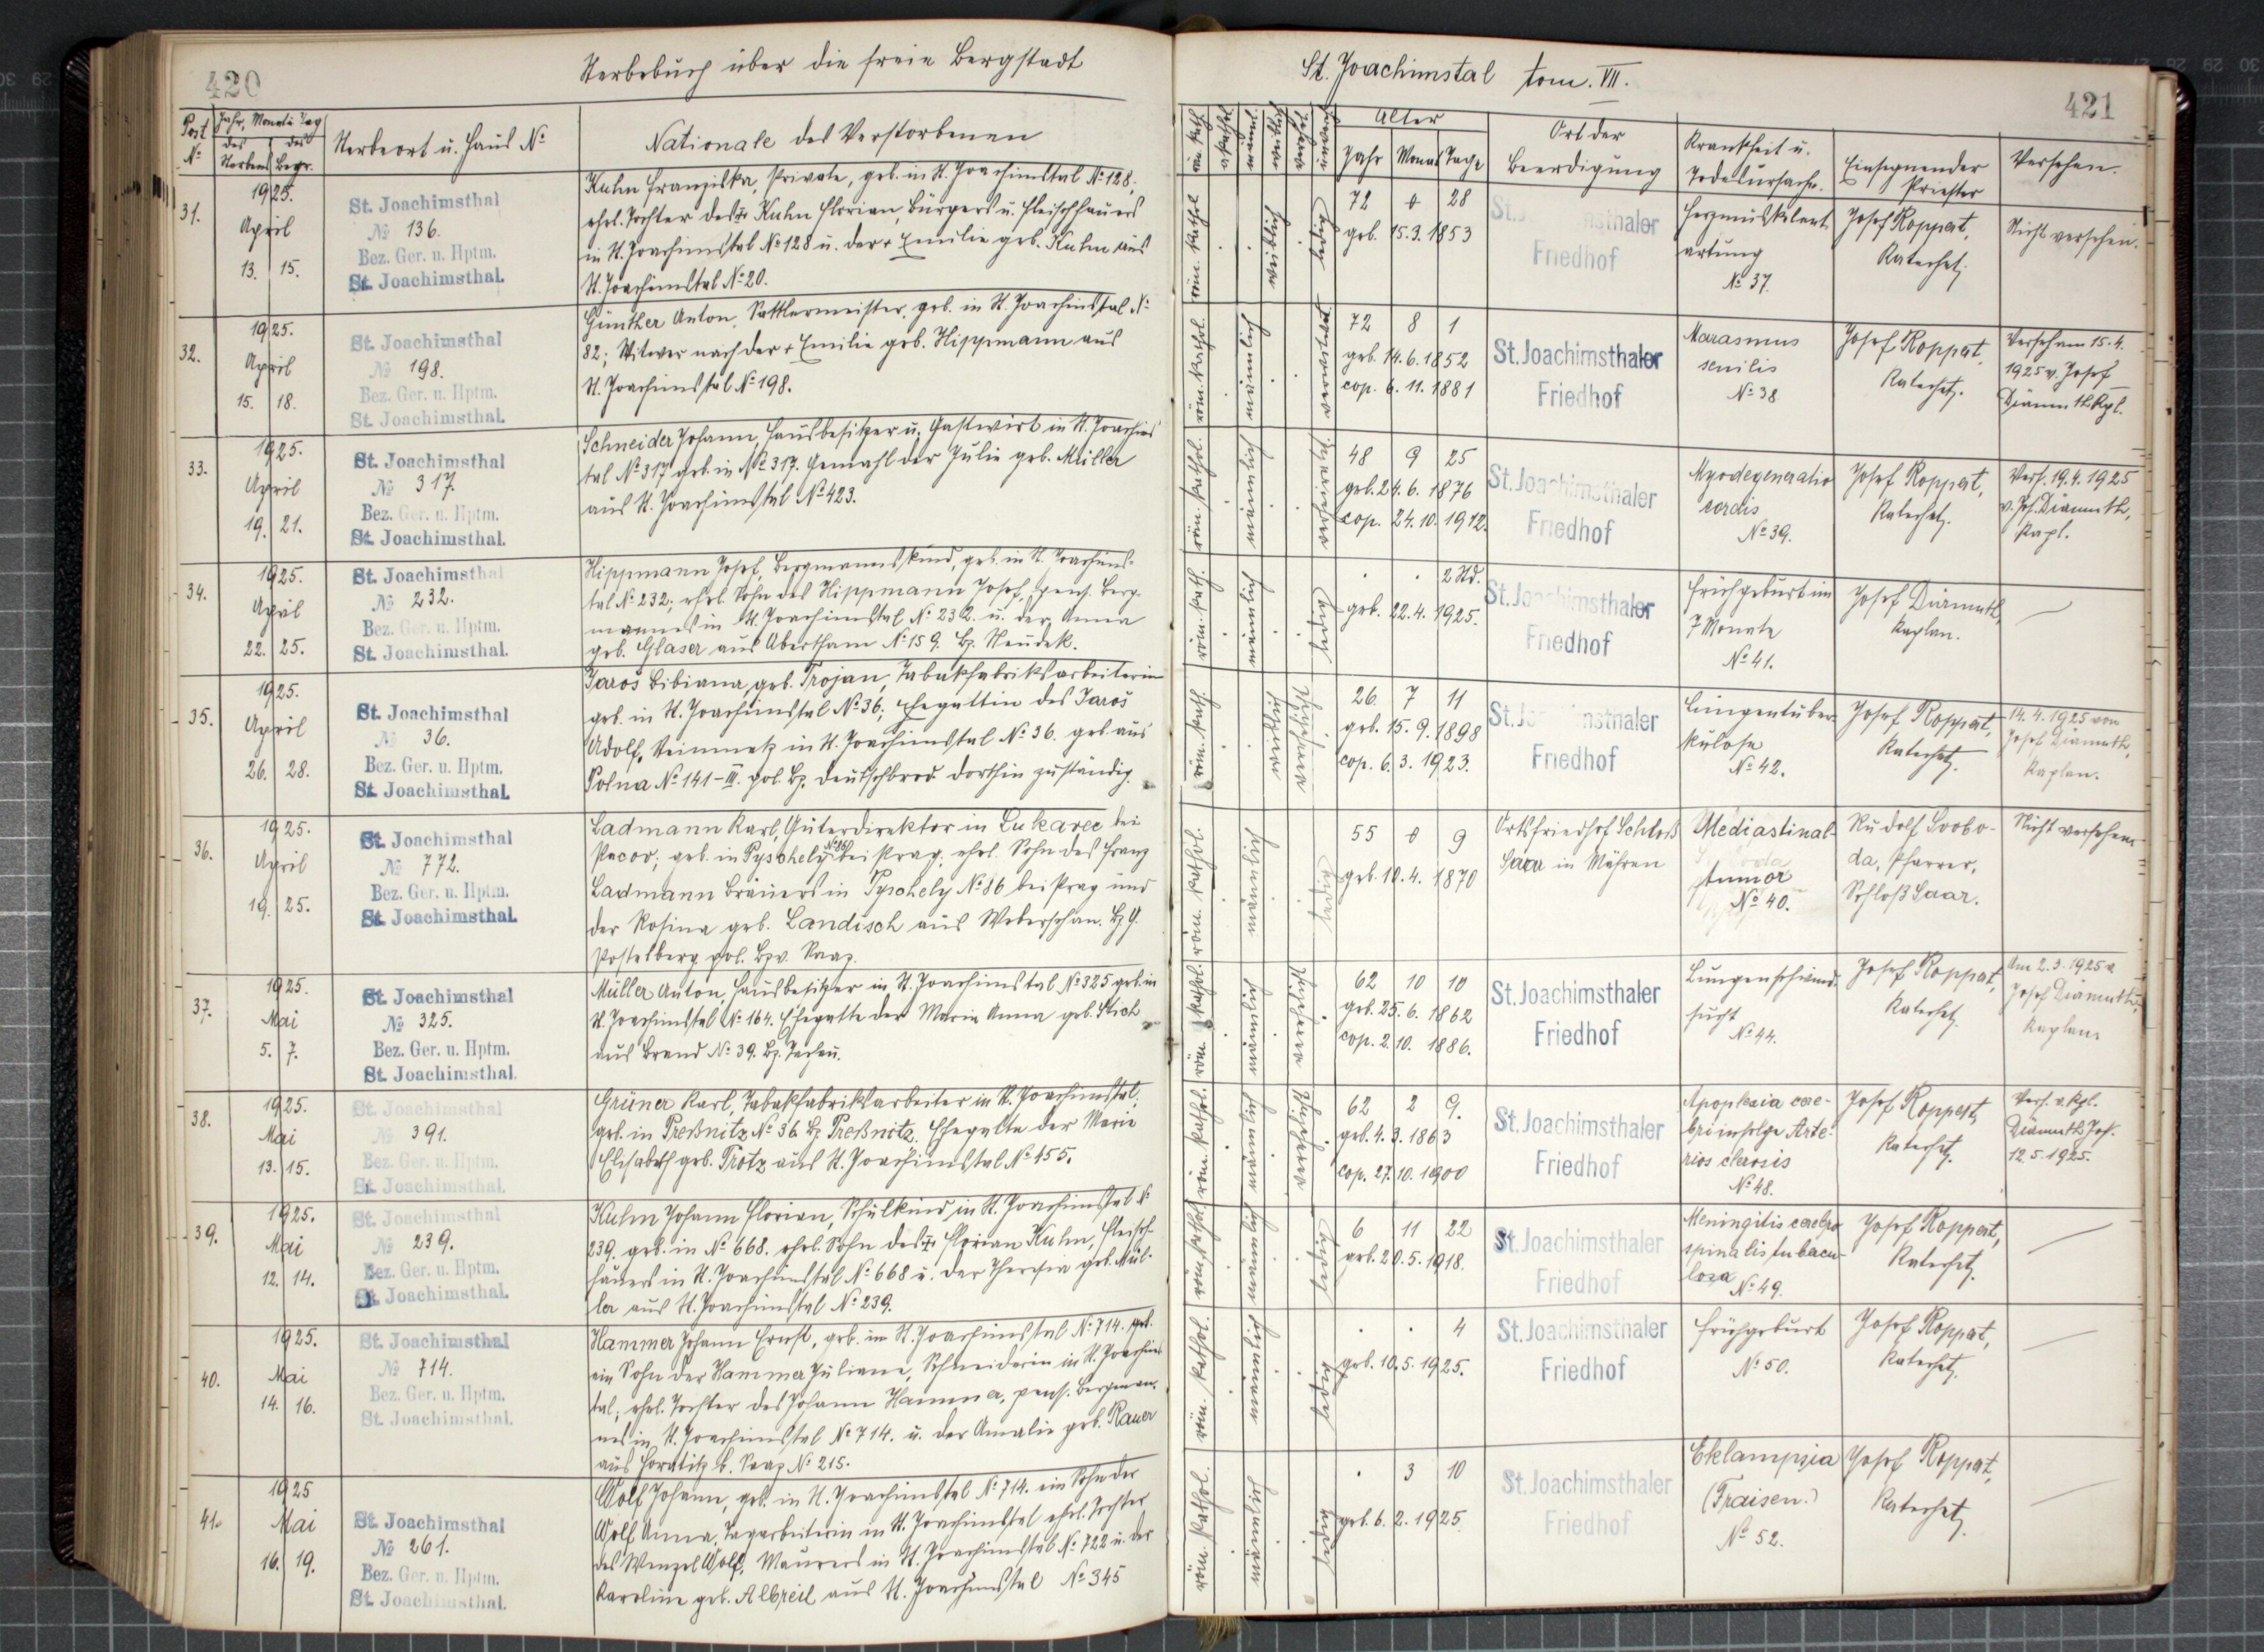 420
Sterbebuch über die freie Bergstadt
Post No
Jahr, Monat u. Tag
des Sterbens
des Begr.
Sterbeort u. Haus No
Nationale des Verstorbenen
31.
1925.
April
13. 15.
St. Joachimsthal
No 136.
Bez. Ger. u. Hptm.
St. Joachimsthal.
Kuhn Franziska, Private, geb. in St. Joachimstal No 128,
ehel. Tochter des + Kuhn Florian, Bürgers u. Fleischhauers
in St. Joachimstal No 128 u. der + Emilie geb. Kuhn aus
St. Joachimstal No 20.
32.
1925.
April
15. 18.
St. Joachimsthal
No 198.
Bez. Ger. u. Hptm.
St. Joachimsthal.
Günther Anton, Sattlermeister, geb. in St. Joachimstal No
82; Witwer nach der + Emilie geb. Hippmann aus
St. Joachimstal No 198.
33.
1925.
April
19. 21.
St. Joachimsthal
No 317.
Bez. Ger. u. Hptm.
St. Joachimsthal.
Schneider Johann, Hausbesitzer u. Gastwirt in St. Joachims
tal No 317 geb. in No 317. Gemahl der Julie geb. Müller
aus St. Joachimstal No 423.
34.
1925.
April
22. 25.
St. Joachimsthal
No 232.
Bez. Ger. u. Hptm.
St. Joachimsthal.
Hippmann Josef, Bergmannskind, geb. in St. Joachims-
tal No 232; ehel. Sohn des Hippmann Josef, pens. Berg-
mannes in St. Joachimstal No 232. u. der Anna
geb. Glaser aus Abertham No 159. Bz. Neudek.
35.
1925.
April
26. 28.
St. Joachimsthal
No 36.
Bez. Ger. u. Hptm.
St. Joachimsthal.
Jaroš Bibiana, geb. Trojan, Tabakfabriksarbeiterin
geb. in St. Joachimstal No 36; Ehegattin des Jaroš
Adolf, in St. Joachimstal No 36. geb. aus
Polna No 141-III. pol. Bz. Deutschbrod dorthin zuständig.
36.
1925.
April
19. 25.
St. Joachimsthal
No 772.
Bez. Ger. u. Hptm.
St. Joachimsthal.
Ladmann Karl, Güterdirektor in Lukavec bei
Pacov; geb. in Pyschely No 86 bei Prag, ehel. Sohn des Franz
Ladmann Bräuers in Pyschely No 86 bei Prag und
der Rosina geb. Landisch aus Weberschan. Bz. G.
Postelberg pol. Bzv. Saaz.
37.
1925.
Mai
5. 7.
St. Joachimsthal
No 325.
Bez. Ger. u. Hptm.
St. Joachimsthal.
Müller Anton, Hausbesitzer in St. Joachimstal No 325 geb. in
St. Joachimstal No 164. Ehegatte der Maria Anna geb. Stich
aus Brand No 39. Bz. Tachau.
38.
1925.
Mai
13. 15.
St. Joachimsthal
No 391.
Bez. Ger. u. Hptm.
St. Joachimsthal.
Grüner Karl, Tabakfabriksarbeiter in St. Joachimstal,
geb. in Preßnitz No 36 Bz Preßnitz. Ehegatte der Marie
Elisabeth geb. Trotz aus St. Joachimstal No 455.
39.
1925.
Mai
12. 14.
St. Joachimsthal
No 239.
Bez. Ger. u. Hptm.
St. Joachimsthal.
Kuhn Johann Florian, Schulkind, in St. Joachimstal No
239. geb. in No 668. ehel. Sohn des + Florian Kuhn, Fleisch-
hauers in St. Joachimstal No 668 u. der Theresia geb. Mül-
ler aus St. Joachimstal No 239.
40.
1925.
Mai
14. 16.
St. Joachimsthal
No 714.
Bez. Ger. u. Hptm.
St. Joachimsthal.
Hammer Johann Ernst, geb. in St. Joachimstal No 714.
ein Sohn der Hammer Juliane, Schneiderin in St. Joachims
tal; ehel. Tochter des Johann Hammer, pens. Bergman-
nes in St. Joachimstal No 714. u. der Amalie geb. Rauer
aus Horatitz b. Saaz No 215.
41.
1925
Mai
16. 19.
St. Joachimsthal
No 261.
Bez. Ger. u. Hptm.
St. Joachimsthal.
Wolf Johann, geb. in St. Joachimstal No 714. ein Sohn der
Wolf Anna, Tagarbeiterin in St. Joachimstal ehel. Tochter
des Wenzel Wolf, Maurers in St. Joachimstal No 722 u. der
Karoline geb. Albreil aus St. Joachimstal No 345
St. Joachimstal tom. VII.
421
röm. kath.
akathol.
männl.
weiblich
verheir.
unverh.
Alter
Jahr Monat Tage
Ort der Beerdigung
Krankheit u. Todesursache.
Einsegnender Priester
Versehen.
röm. kathol.
weiblich
ledig
72 0 28
geb. 15.3.1853
St. Joachimsthaler
Friedhof
Herzmuskelent
artung
No 37.
Josef Koppert,
Katechet.
Nicht versehen.
röm. kathol.
männlich
verwitwet
72 8 1
geb. 14.6.1852
cop. 6.11.1881
St. Joachimsthaler
Friedhof
Marasmus
senilis
No 38
Josef Koppert,
Katechet.
Versehen 15.4.
1925 v. Josef
Diamuth Kpl.
röm. kathol.
männlich
verheirat.
48 9 25
geb. 24.6.1876
cop. 24.10.1912.
St. Joachimsthaler
Friedhof
Myodegeneratio
cordis
No 39.
Josef Koppert,
Katechet.
Vers. 19.4.1925
v. Jos. Diamuth,
Kapl.
röm. kath.
männlich
ledig
2 Std.
geb. 22.4.1925.
St. Joachimsthaler
Friedhof
Frühgeburt im
7 Monate
No 41.
Josef Diamuth,
Kaplan.
röm. kath.
weiblich
verheirat
26 7 11
geb. 15.9.1898
cop. 6.3.1923.
St. Joachimsthaler
Friedhof
Lungentuber-
kulose
No 42.
Josef Koppert,
Katechet.
14.4.1925 von
Josef Diamuth,
Kaplan.
röm. kathol.
männlich
ledig
55 0 9
geb. 10.4.1870
Ortsfriedhof Schloß
Saar in Mähren
Mediastinal-
tumor
No 40.
Rudolf Svobo-
da, Pfarrer,
Schloß Saar.
Nicht versehen
röm. kathol.
männlich
verheirat
62 10 10
geb. 25.6.1862
cop. 2.10.1886.
St. Joachimsthaler
Friedhof
Lungenschwind-
sucht
No 44.
Josef Koppert,
Katechet.
Am 2.3.1925 v.
Josef Diamuth,
Kaplan
röm. kathol.
männlich
verheirat
62 2 9.
geb. 4.3.1863
cop. 27.10.1900
St. Joachimsthaler
Friedhof
Apoplexia cere-
bri infolge Arte-
riosclerosis
No 48.
Josef Koppert,
Katechet.
Vers. v. Kpl.
Diamuth Jos.
12.5.1925.
röm. kathol.
männlich
ledig
6 11 22
geb. 20.5.1918.
St. Joachimsthaler
Friedhof
Meningitis cerebro
spinalis tubercu-
losa No 49.
Josef Koppert,
Katechet.
röm. kathol.
männlich
ledig
4
geb. 10.5.1925.
St. Joachimsthaler
Friedhof
Frühgeburt
No 50.
Josef Koppert,
Katechet.
röm. kathol.
männlich
ledig
3 10
geb. 6.2.1925
St. Joachimsthaler
Friedhof
Eklampsia
(Fraisen.)
No 52.
Josef Koppert,
Katechet.